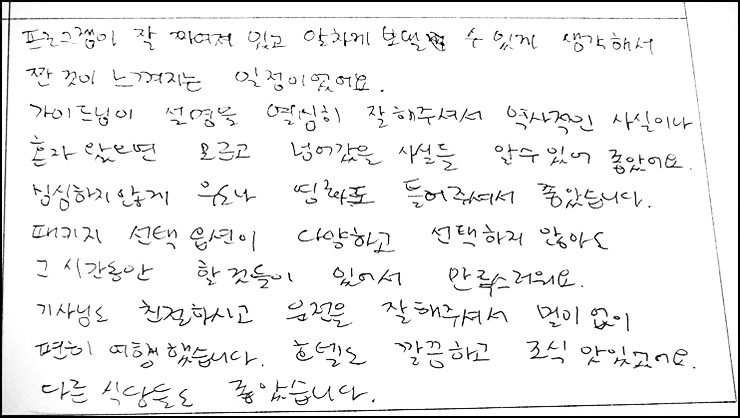 프로그램이 잘 짜여져 있고 알차게 보낼 수 있게 생각해서
짠 것이 느껴지는 일정이었어요.
가이드님이 설명을 열심히 잘해주셔서 역사적인 사실이나
혼자 왔으면 모르고 넘어갔을 사실들 알수있어 좋았어요.
심심하지않게 유도나 영화도 틀어주셔서 좋았습니다.
패키지 선택 옵션이 다양하고 선택하지 않아도
그 시간동안 할것들이 있어서 만족스러워요.
기사님도 친절하시고 운전을 잘해주셔서 멀미없이
편히 여행했습니다. 호텔도 깔끔하고 조식 맛있었어요.
다른 식당들도 좋았습니다.